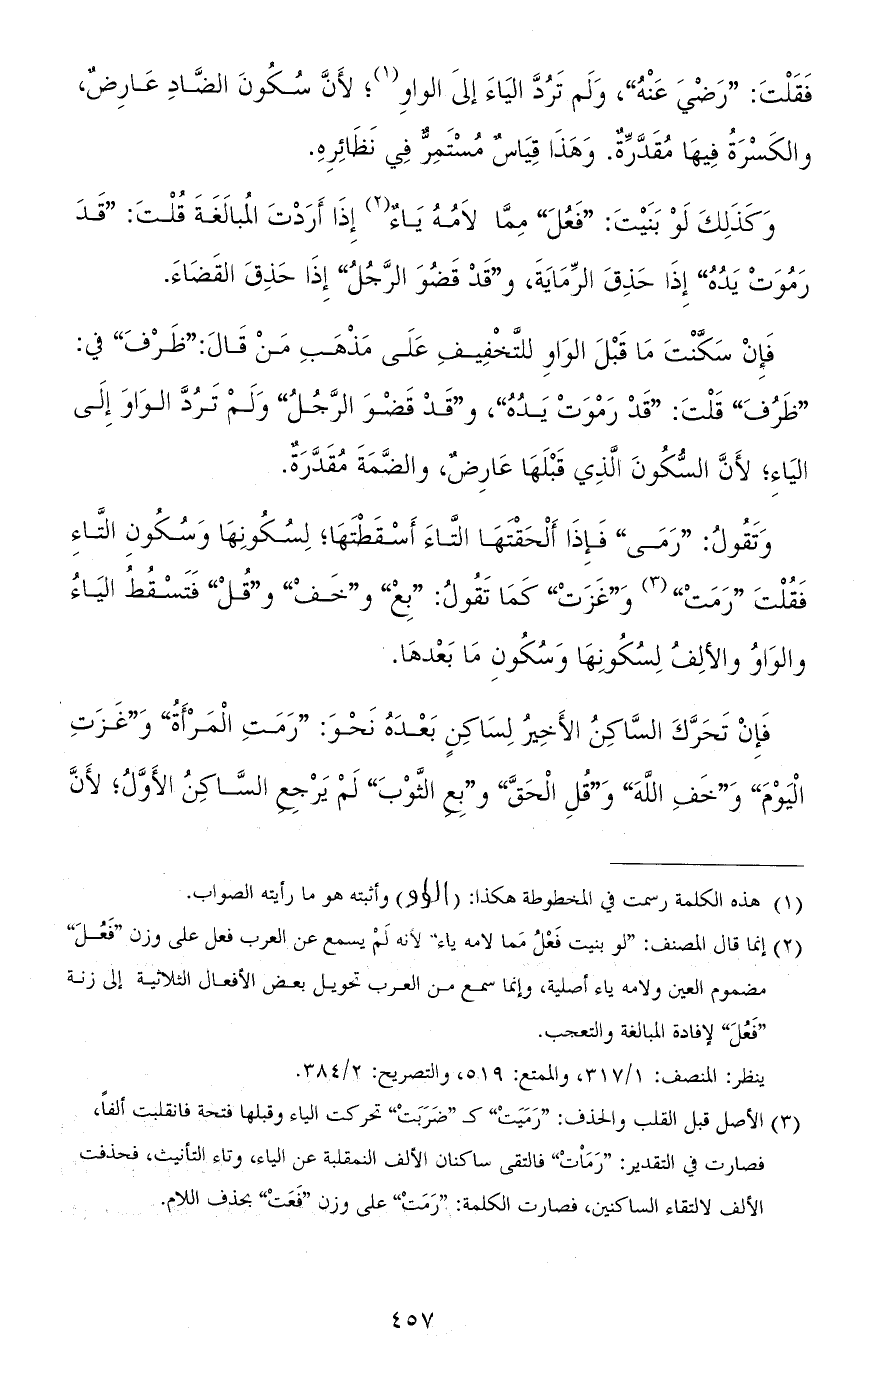 فَقَلْتَ: ”رَضْيَ عَنْهُ“، وَلَم تَرُدَّ اليَاءَ إلىَ الواوِ(١)؛ لأَنَّ سُكُونَ الضَّادِ عَارِضٌ،
والكَسْرَةُ فِيهَا مُقَدَّرَّةٌ. وَهَذَا قِيَاسٌ مُسْتَمِرٌّ فِي نَظَائِرِهِ.
وَكَذَلِكَ لَوْ بَنَيْتَ: ”فَعُلَ“ مِمَّا لاَمُهُ يَاءٌ(٢) إذَا أَرَدْتَ المُبالَغَةَ قُلْتَ: ”قَدَ
رَمُوَتْ يَدُهُ“ إذَا حَذِقَ الرِّمَايَةَ، و”قَدْ قَضُوَ الرَّجُلُ“ إذَا حَذِقَ القَضَاءَ.
فَإنْ سَكَّنْتَ مَا قَبْلَ الوَاوِ للتَّخْفِيفِ عَلَى مَذْهَبِ مَنْ قَالَ:”ظَرْفَ“ في:
”ظَرُفَ“ قَلْتَ: ”قَدْ رَمْوَتْ يَدُهُ“، و”قَدْ قَضْوَ الرَّجُلُ“ وَلَمْ تَرُدَّ الوَاوَ إلَى
اليَاءِ؛ لأَنَّ السُّكُونَ الَّذِي قَبْلَهَا عَارِضٌ، والضَّمَةَ مُقَدَّرَةٌ.
وَتَقُولُ: ”رَمَى“ فَإذَا أَلْحَقْتَهَا التَّاءَ أسْقَطْتَهَا؛ لِسُكُونِهَا وَسُكُونِ التَّاءِ
فَقُلْتَ ”رَمَتْ“(٣) وَ”غَزَتْ“ كَمَا تَقُولُ: ”بِعْ“ و”خَفْ“ و”قُلْ“ فَتَسْقُطُ اليَاءُ
والوَاوُ والألِفُ لِسُكُونِهَا وَسُكُونِ مَا بَعْدهَا.
فَإنْ تَحَرَّكَ السَّاكِنُ الأخِيرُ لِسَاكِنٍ بَعْدَهُ نَحْوَ: ”رَمَتِ الْمَرْأَةُ“ وَ”غَزَتِ
الْيَوْمَ“ وَ”خَفِ اللَّهَ“ وَ”قُلِ الْحَقَّ“ و”بِعِ الثَّوْبَ“ لَمْ يَرْجِعِ السَّاكِنُ الأوَّلُ؛ لأَنَّ
(١) هذه الكلمة رسمت في المخطوطة هكذا: (الؤو) وأثبته هو ما رأيته الصواب.
(٢) إنما قال المصنف: ”لو بنيت فَعْلُ مما لامه ياء“ لأنه لَمْ يسمع عن العرب فعل على وزن ”فَعُلَ“
مضموم العين ولامه ياء أصلية، وإنما سمع من العرب تحويل بعض الأفعال الثلاثية إلى زنة
”فَعُلَ“ لإفادة المبالغة والتعجب.
ينظر: المنصف: ٣١٧/١، والممتع: ٥١٩، والتصريح: ٣٨٤/٢.
(٣) الأصل قبل القلب والحذف: ”رَمَيَتْ“ كـ ”ضَرَبَتْ“ تحركت الياء وقبلها فتحة فانقلبت ألفاً،
فصارت في التقدير: ”رَمَأتْ“ فالتقى ساكنان الألف النمقلبة عن الياء، وتاء التأنيث، فحذفت
الألف لالتقاء الساكنين، فصارت الكلمة: ”رَمَتْ“ على وزن ”فَعَتْ“ بحذف اللام.
٤٥٧